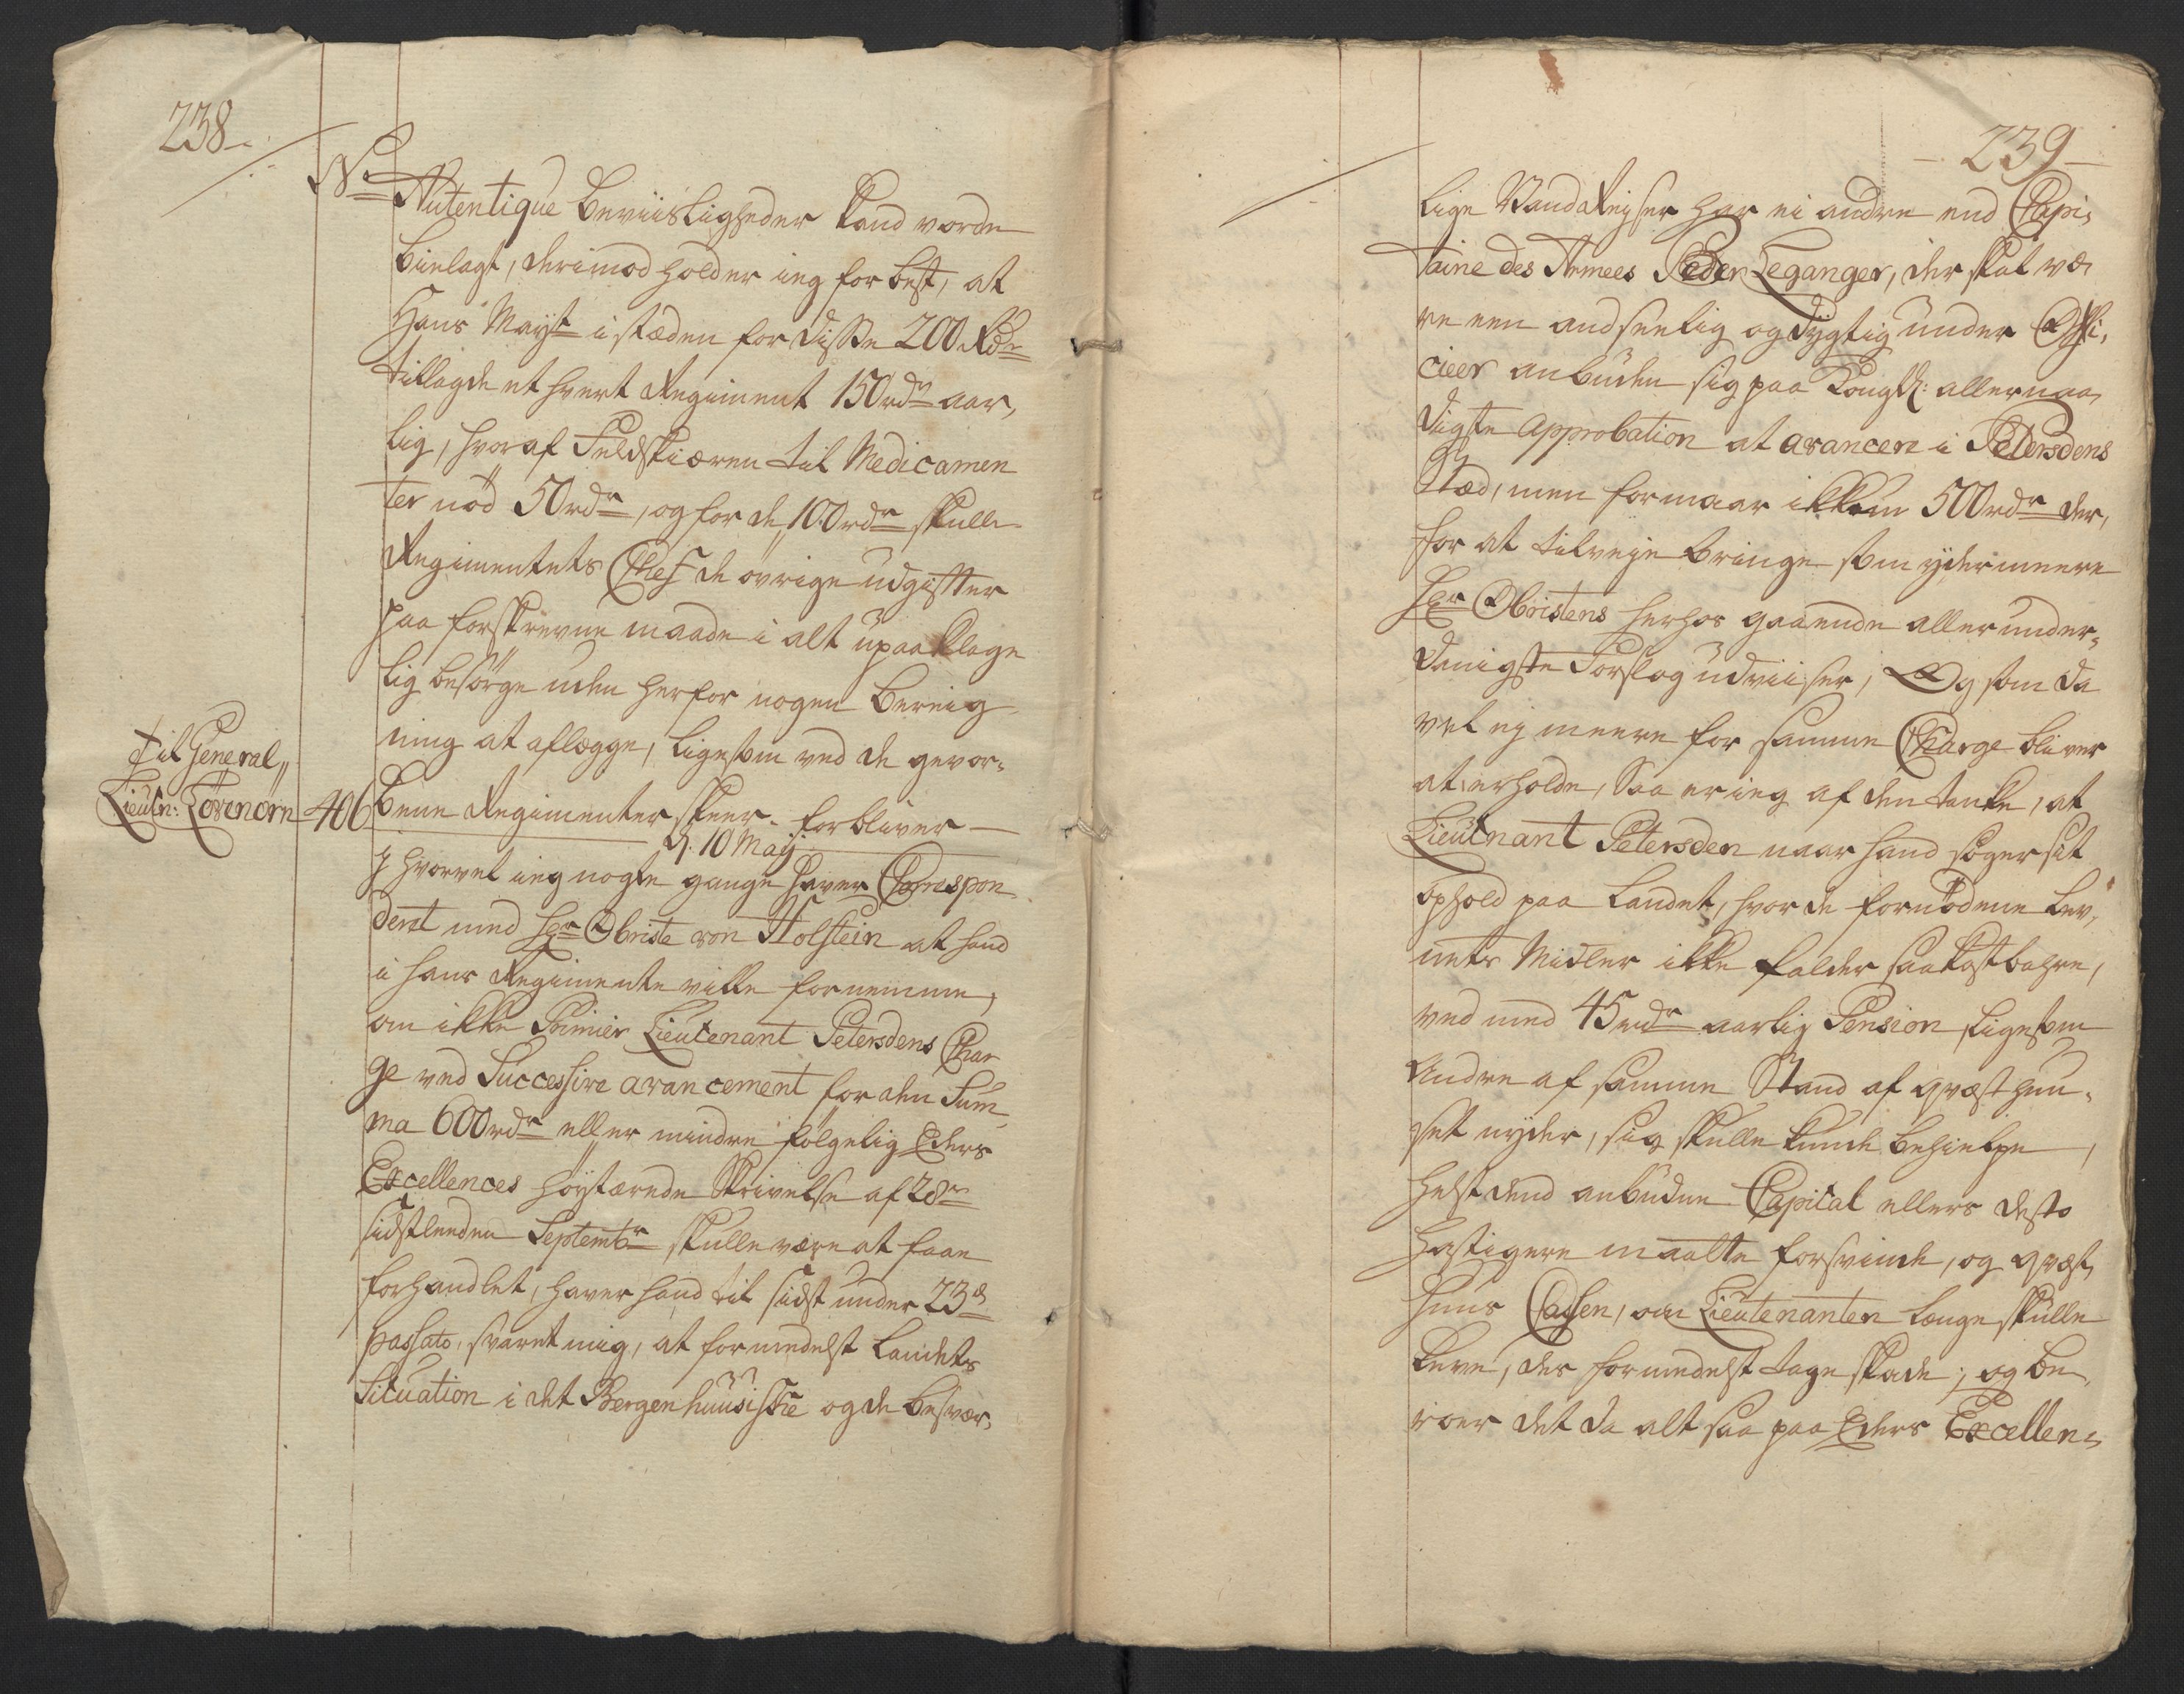 238
No
Autentique beviisligheder kand vorde
bielagt, derimod holder ieg for best, at
Hans Mayst i stæden for disse 200 Rdr
tillagde et hvert Regiment 150 rdr aar,
lig, hvoraf Feldskiæren til Medicamen
ter nöd 50 rdr, og for de 100 rdr skulle
Regimentets Chef de övrige udgifter
paa forskrevne maade i alt upaaklage
lig besörge uden herfor nogen bereig
ning at aflægge, ligesom ved de gevor-
bene Regimenter skeer. forbliver
d. 10 Maij
Til General
Lieutn: Lövenörn
406
J hvorvel ieg nogle gange haver Correspon
derat med Hr Obriste von Holstein at hand
i hans Regimente ville fornemme,
om ikke Primier Lieutenant Petersdens Char
ge ved Successive avancement for den Sum
ma 600 rdr eller mindre fölgelig Eders
Excellences höystærede Skrivelse af 28de
sidstleeden Septembr skulle være at faae
forhandlet, haver hand til sidst under 23d
passato, svaret mig, at formedelst Landets
Situation i det Bergenhuusiske og de besvær,
239
lige Vand Reyser har ei andre end Capi,
taine des Armees Peder Leganger, der skal væ
re een andseelig og dygtig under Offi,
cieer anbuden sig paa Kongl: allernaa,
digste Approbation at avancere i Petersdens
Stæd, men formaar ikkun 500 rdr der,
for at tilveye bringe som ydermeere
Hr Obristens herhos gaaende allerunder-
danigste Forslag udviiser, Og som da
vel ej meere for samme Charge bliver
at erholde, Saa er ieg af den tanke, at
Lieutnant Petersden naar hand söger sit
ophold paa Landet, hvor de fornödene Lev,
nets Midler ikke falder saa kostbahre,
ved med 45 rdr aarlig Pension ligesom
Andre af samme Stand af qvæsthuu-
set nyder, sig skulle kunde behielpe,
helst dend anbudne Capital ellers desto
hastigere maatte forsvinde, og qvæst,
huus Cassen, om Lieutenanten længe skulle
Leve, der formedelst tage skade; og be,
roer det da alt saa paa Eders Excellen-